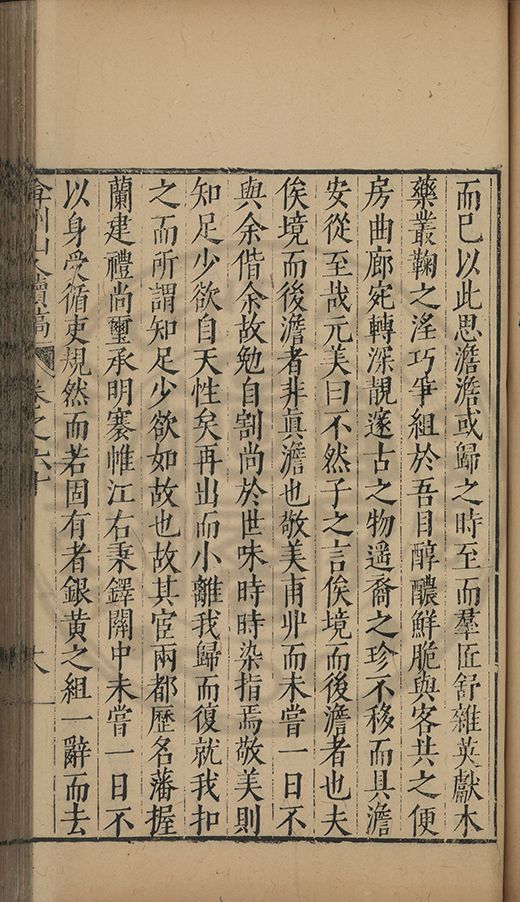 而已以此思澹澹或歸之時至而羣匠舒雜英獻木
藥叢鞠之淫巧爭組於吾目醇醲鮮脆與客共之便
房曲廊宛轉深靚邃古之物遥裔之珍不移而具澹
安從至哉元美曰不然子之言俟境而後澹者也夫
俟境而後澹者非眞澹也敬美甫丱而未嘗一日不
與余偕余故勉自割尚於世味時時染指焉敬美則
知足少欲自天性矣再出而小離我歸而復就我扣
之而所謂知足少欲如故也故其宦兩都歷名藩握
蘭建禮尚璽承明褰帷江右秉鐸關中未嘗一日不
以身受循吏規然而若固有者銀黄之組一辭而去
弇州山人續稿 卷之六十